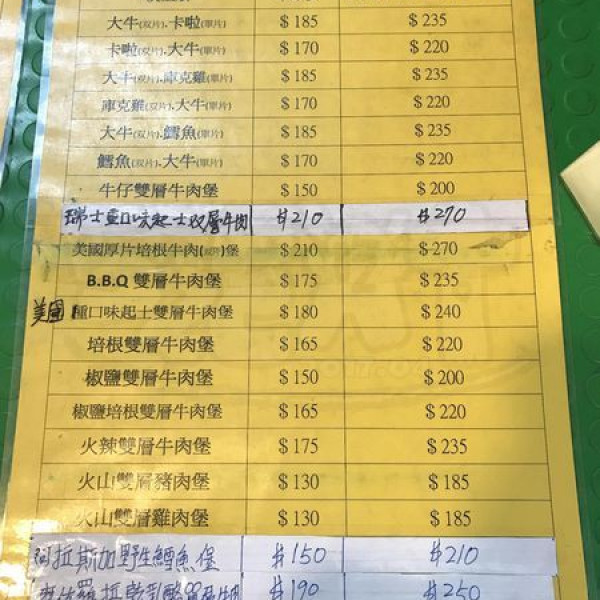 大牛(双片).卡啦(單片) $185 $235
卡啦(双片).大牛(單片) $170 $220
大牛(双片).庫克雞(單片) $185 $235
庫克雞(双片).大牛(單片) $170 $220
大牛(双片).鱈魚(單片) $185 $235
鱈魚(双片).大牛(單片) $170 $220
牛仔雙層牛肉堡 $150 $200
瑞士重口味起士双層牛肉 $210 $270
美國厚片培根牛肉(双片)堡 $210 $270
B.B.Q 雙層牛肉堡 $175 $235
美國 重口味起士雙層牛肉堡 $180 $240
培根雙層牛肉堡 $165 $220
椒鹽雙層牛肉堡 $150 $200
椒鹽培根雙層牛肉堡 $165 $220
火辣雙層牛肉堡 $175 $235
火山雙層豬肉堡 $130 $185
火山雙層雞肉堡 $130 $185
阿拉斯加野生鱈魚堡 $150 $210
$190 $250